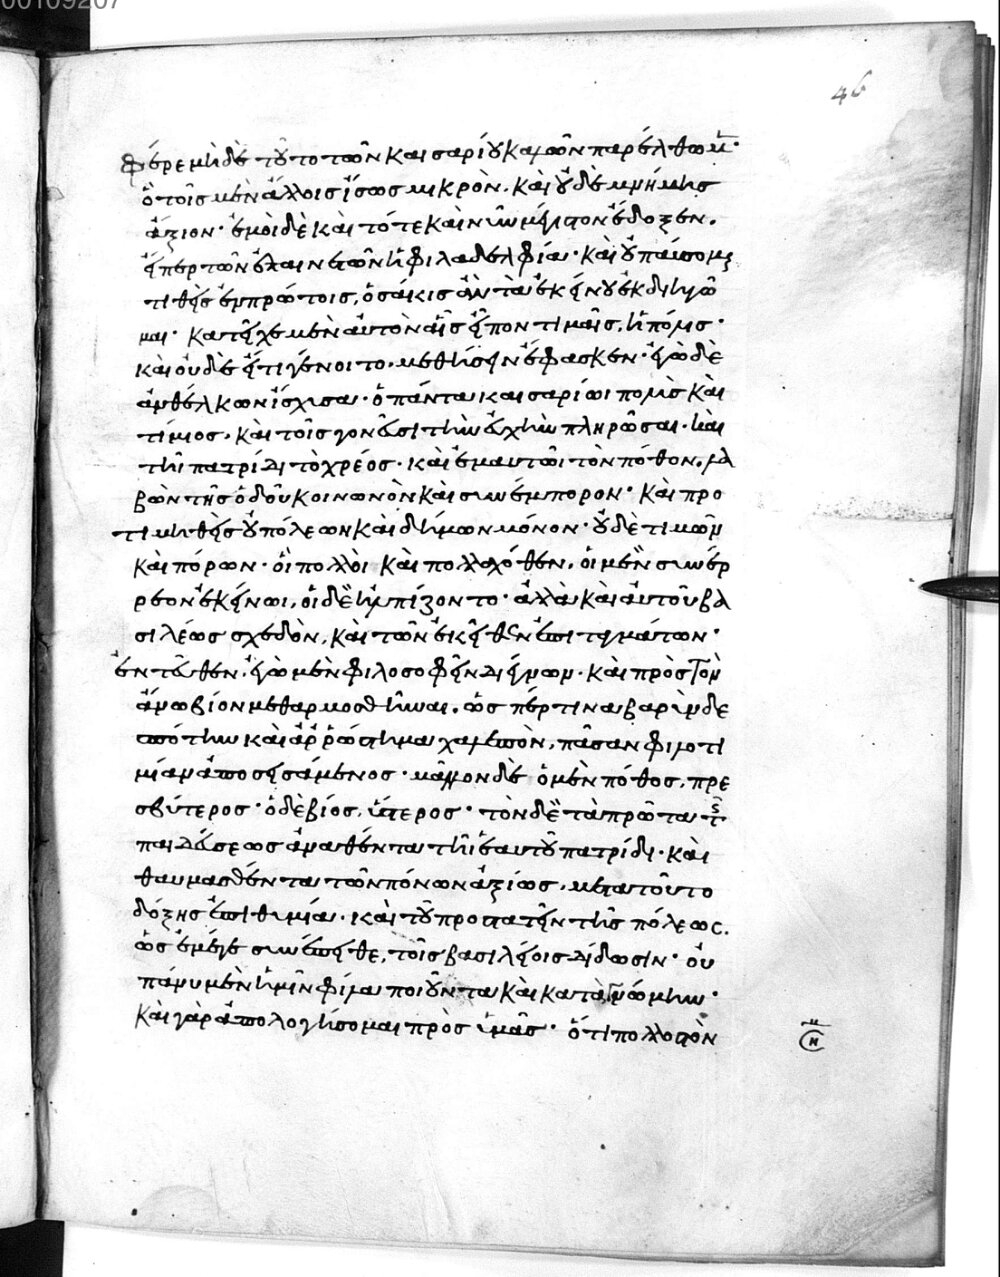 00109207
46
φέρε μὴ δὲ τοῦτο τῶν καισαρίου καλῶν παρέλθωμεν·
ὃ τοῖς μὲν ἄλλοις ἴσως μικρὸν. καὶ οὐδὲ μνήμης
ἄξιον· ἐμοὶ δὲ καὶ τότε καὶ νῦν μέγιστον ἔδοξεν.
εἴπερ τῶν ἐπαινετῶν ἡ φιλαδελφία· καὶ οὐ παύσομαι
τιθεὶς ἐμπρώτοις, ὁσάκις ἂν τὰ ἐκείνου ἐκδιηγῶ
μαι· κατεῖχε μὲν αὐτὸν αἷς εἶπον τιμαῖς, ἡ πόλις·
καὶ οὐδὲ εἴτι γένοιτο, μεθήσειν ἔφασκεν· ἐγὼ δὲ
ἀνθέλκων ἴσχυσα· ὁ πάντα καισαρίωι πολὺς καὶ
τίμιος, καὶ τοῖς γονεῦσι τὴν εὐχὴν πληρῶσαι. καὶ
τῆι πατρίδι τὸ χρέος· καὶ ἐμαυτῶι τὸν πόθον, λα
βὼν τῆς ὁδοῦ κοινωνὸν καὶ συνέμπορον· καὶ προ
τιμηθεὶς οὐ πόλεων καὶ δήμων μόνον· οὐδὲ τιμῶν
καὶ πόρων· οἳ πολλοὶ καὶ πολλαχόθεν, οἱ μὲν συνέρ
ρεον ἐκείνωι, οἱ δὲ ἠλπίζοντο· ἀλλὰ καὶ αὐτοῦ βα
σιλέως σχεδὸν, καὶ τῶν ἐκεῖθεν ἐπιταγμάτων·
ἐντεῦθεν, ἐγὼ μὲν φιλοσοφεῖν διέγνων· καὶ πρὸς τὸν
ἄνω βίον μεθαρμοσθῆναι. ὥσπέρ τινα βαρὺν δε
σπότην καὶ ἀῤῥώστημα χαλεπὸν, πᾶσαν φιλοτι
μίαν ἀποσεισάμενος· μᾶλλον δὲ ὁ μὲν πόθος, πρε
σβύτερος· ὁ δὲ βίος, ὕστερος· τὸν δὲ τὰ πρῶτα τῆς
παιδεύσεως ἀναθέντα τῆι ἑαυτοῦ πατρίδι· καὶ
θαυμασθέντα τῶν πόνων ἀξίως, μετὰ τοῦτο
δόξης ἐπιθυμία. καὶ τοῦ προστατεῖν τῆς πόλεως.
ὡς ἐμέγε συνέπειθε, τοῖς βασιλείοις δίδωσιν· οὐ
πάνυ μὲν ἡμῖν φίλα ποιοῦντα καὶ κατὰ γνώμην·
καὶ γὰρ ἀπολογήσομαι πρὸς ὑμᾶς· ὅτι πολλοστὸν